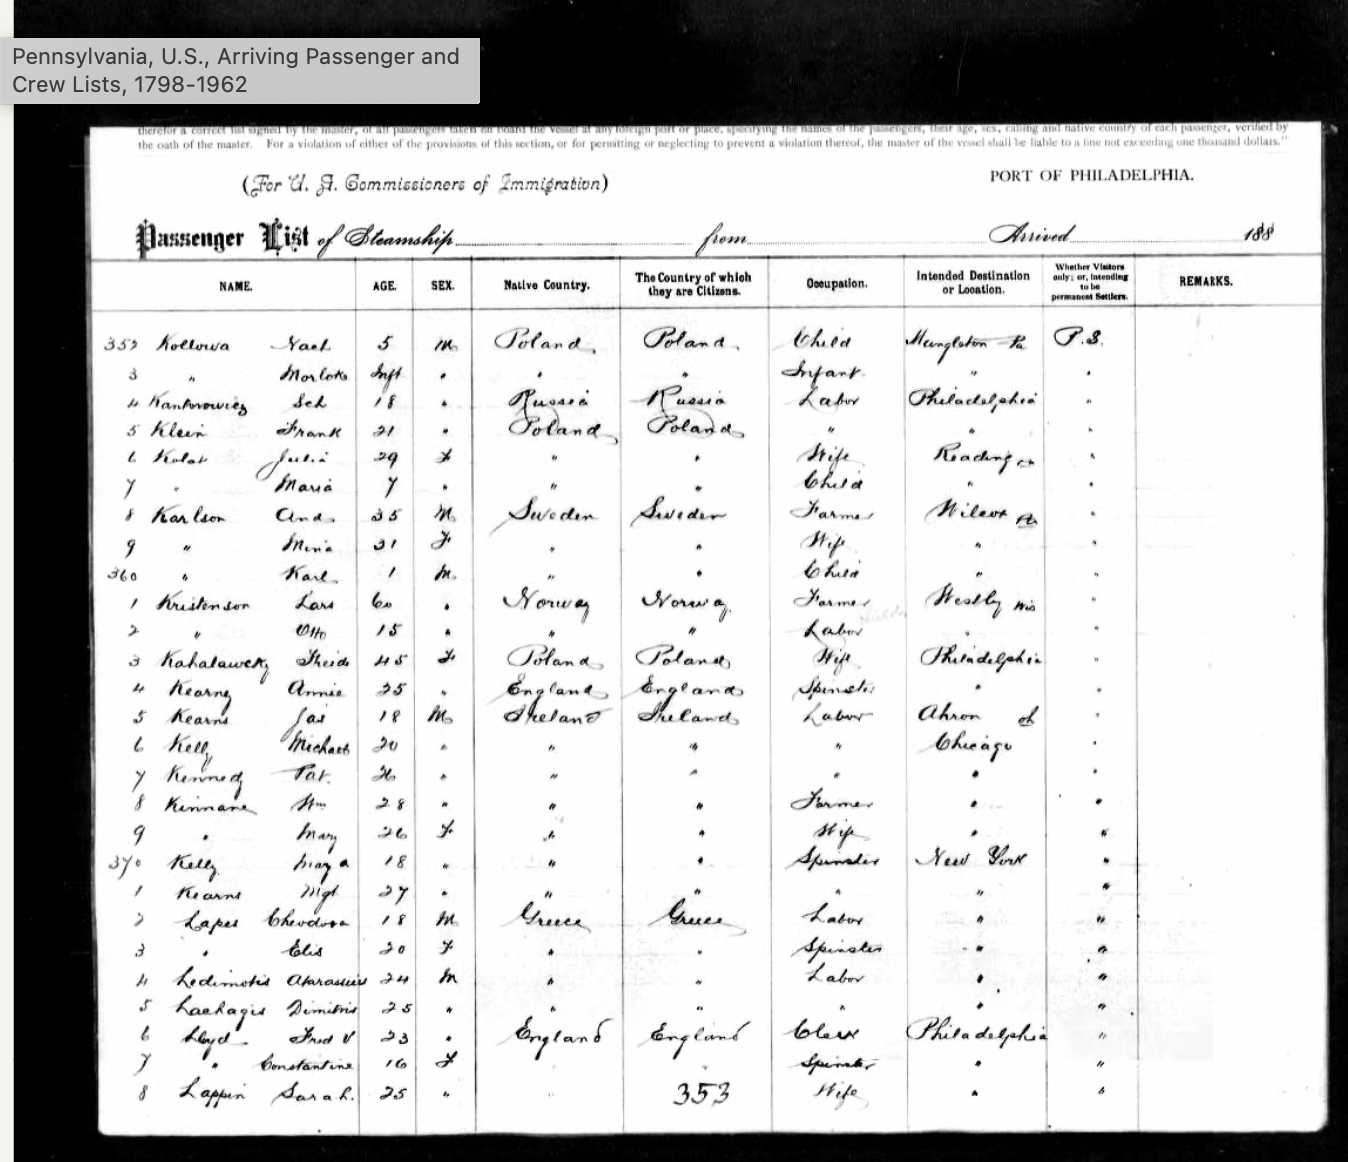 Pennsylvania, U.S., Arriving Passenger and
Crew Lists, 1798-1962
therefor a correct list signed by the master, of all passengers taken on board the vessel at any foreign port or place, specifying the names of the passengers, their age, sex, calling and native country of each passenger, verified by
the oath of the master. For a violation of either of the provisions of this section, or for permitting or neglecting to prevent a violation thereof, the master of the vessel shall be liable to a fine not exceeding one thousand dollars."
(For U. S. Commissioners of Immigration)
PORT OF PHILADELPHIA.
Passenger List of Steamship from Arrived 188
NAME. AGE. SEX. Native Country. The Country of which they are Citizens. Occupation. Intended Destination or Location. Whether Visitors only; or, intending to be permanent Settlers. REMARKS.
352 Kollowa 5 M Poland Poland Child Pa P.S.
3 " Inft " " " Infant " "
4 Kantorowicz Sch 18 " Russia Russia Labor Philadelphia "
5 Klein Frank 21 " Poland Poland " " "
6 Kolat Julia 29 F " " Wife Reading "
7 " Maria 7 " " " Child " "
8 Karlson And. 35 M Sweden Sweden Farmer Wilcox Pa "
9 " Mina 31 F " " Wife " "
360 " Karl 1 M " " Child " "
1 Kristenson Lars 60 " Norway Norway Farmer Westby Wis "
2 " Otto 15 " " " Labor " "
3 45 F Poland Poland Wife Philadelphia "
4 Kearney Annie 25 " England England Spinster " "
5 Kearns Jas 18 M Ireland Ireland Labor Ahron oh "
6 Kelly Michael 20 " " " " Chicago "
7 Kennedy Pat. 26 " " " " " "
8 Kinnane Wm 28 " " " Farmer " "
9 " Mary 26 F " " Wife " "
370 Kelly 18 " " " Spinster New York "
1 Kearns Mgt 27 " " " " " "
2 Lapes Theodora 18 M Greece Greece Labor " "
3 " Elis 20 F " " Spinster " "
4 Ledimotis 24 M " " Labor " "
5 Lachagis Dimitris 25 " " " " " "
6 Lloyd Fred V 23 " England England Clerk Philadelphia "
7 " Constantine 16 F " " Spinster " "
8 Lappin Sarah. 25 " " 353 Wife " "